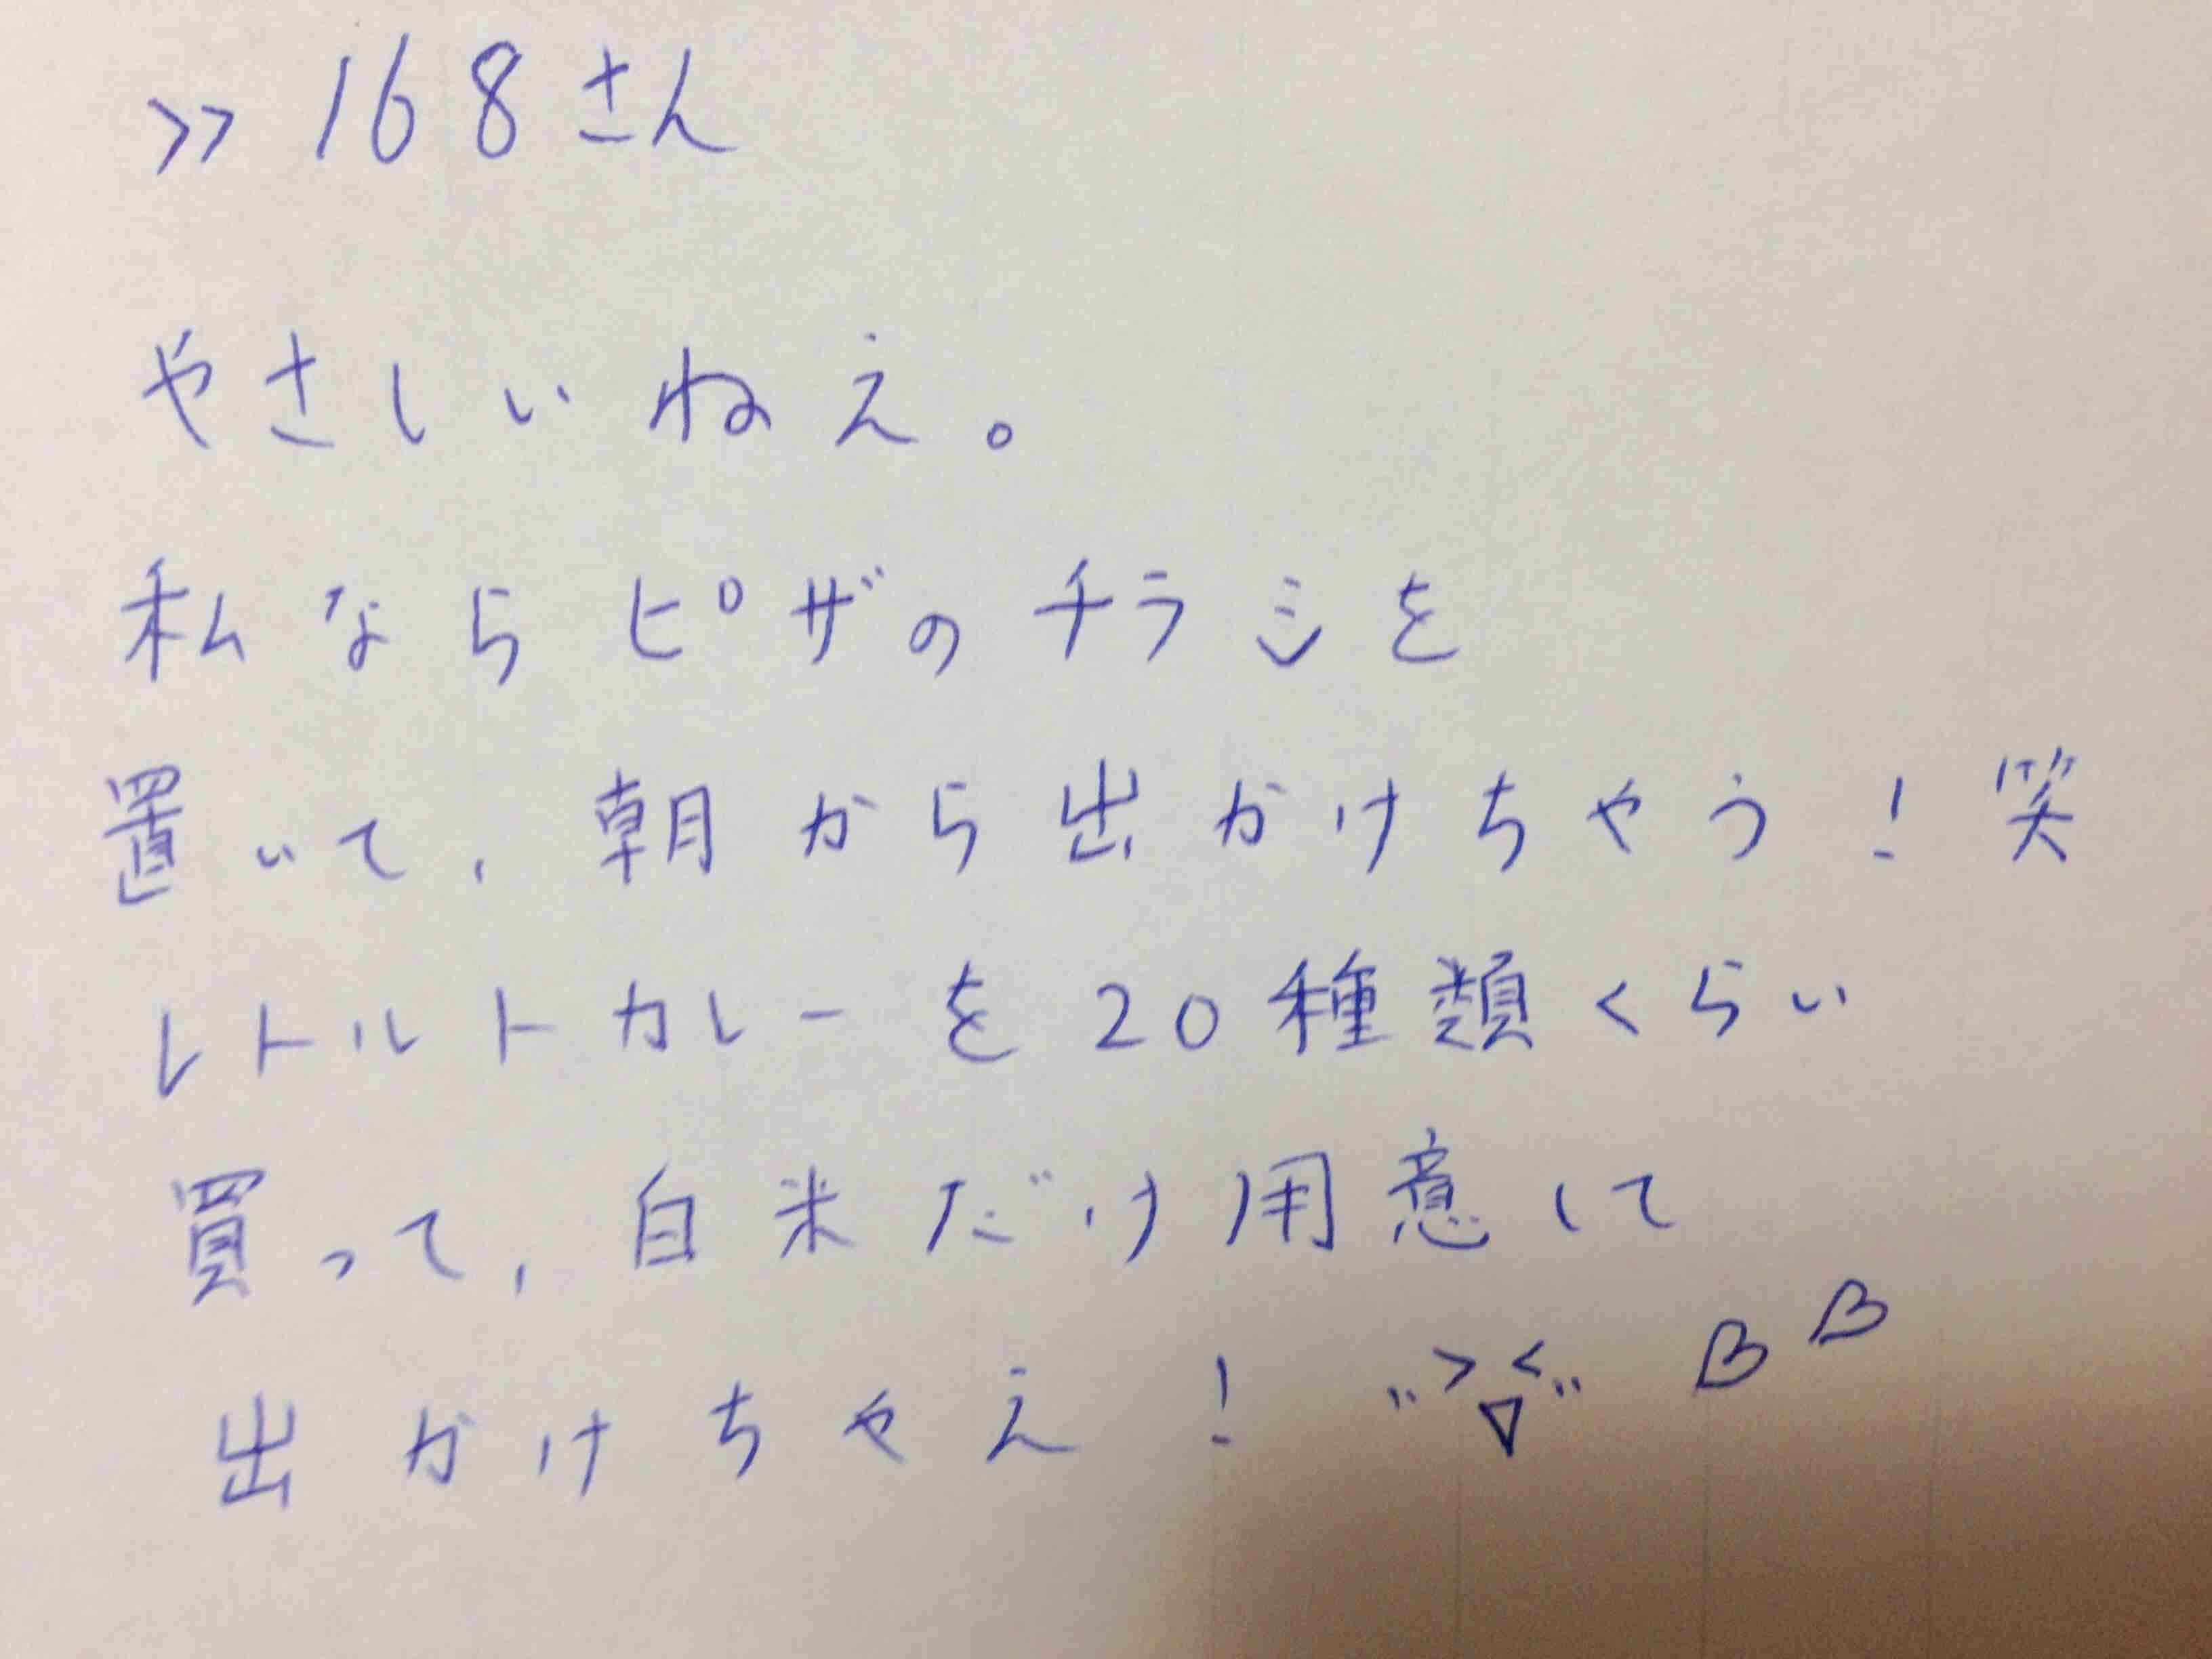 >>168さん
やさしいねえ。
私ならピザのチラシを
置いて、朝から出かけちゃう!笑
レトルトカレーを20種類くらい
買って、白米だけ用意して
出かけちゃえ! "><" ▽ ♡♡